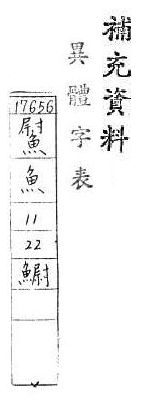 補充資料
異體字表
17656
魚
11
22
䲁